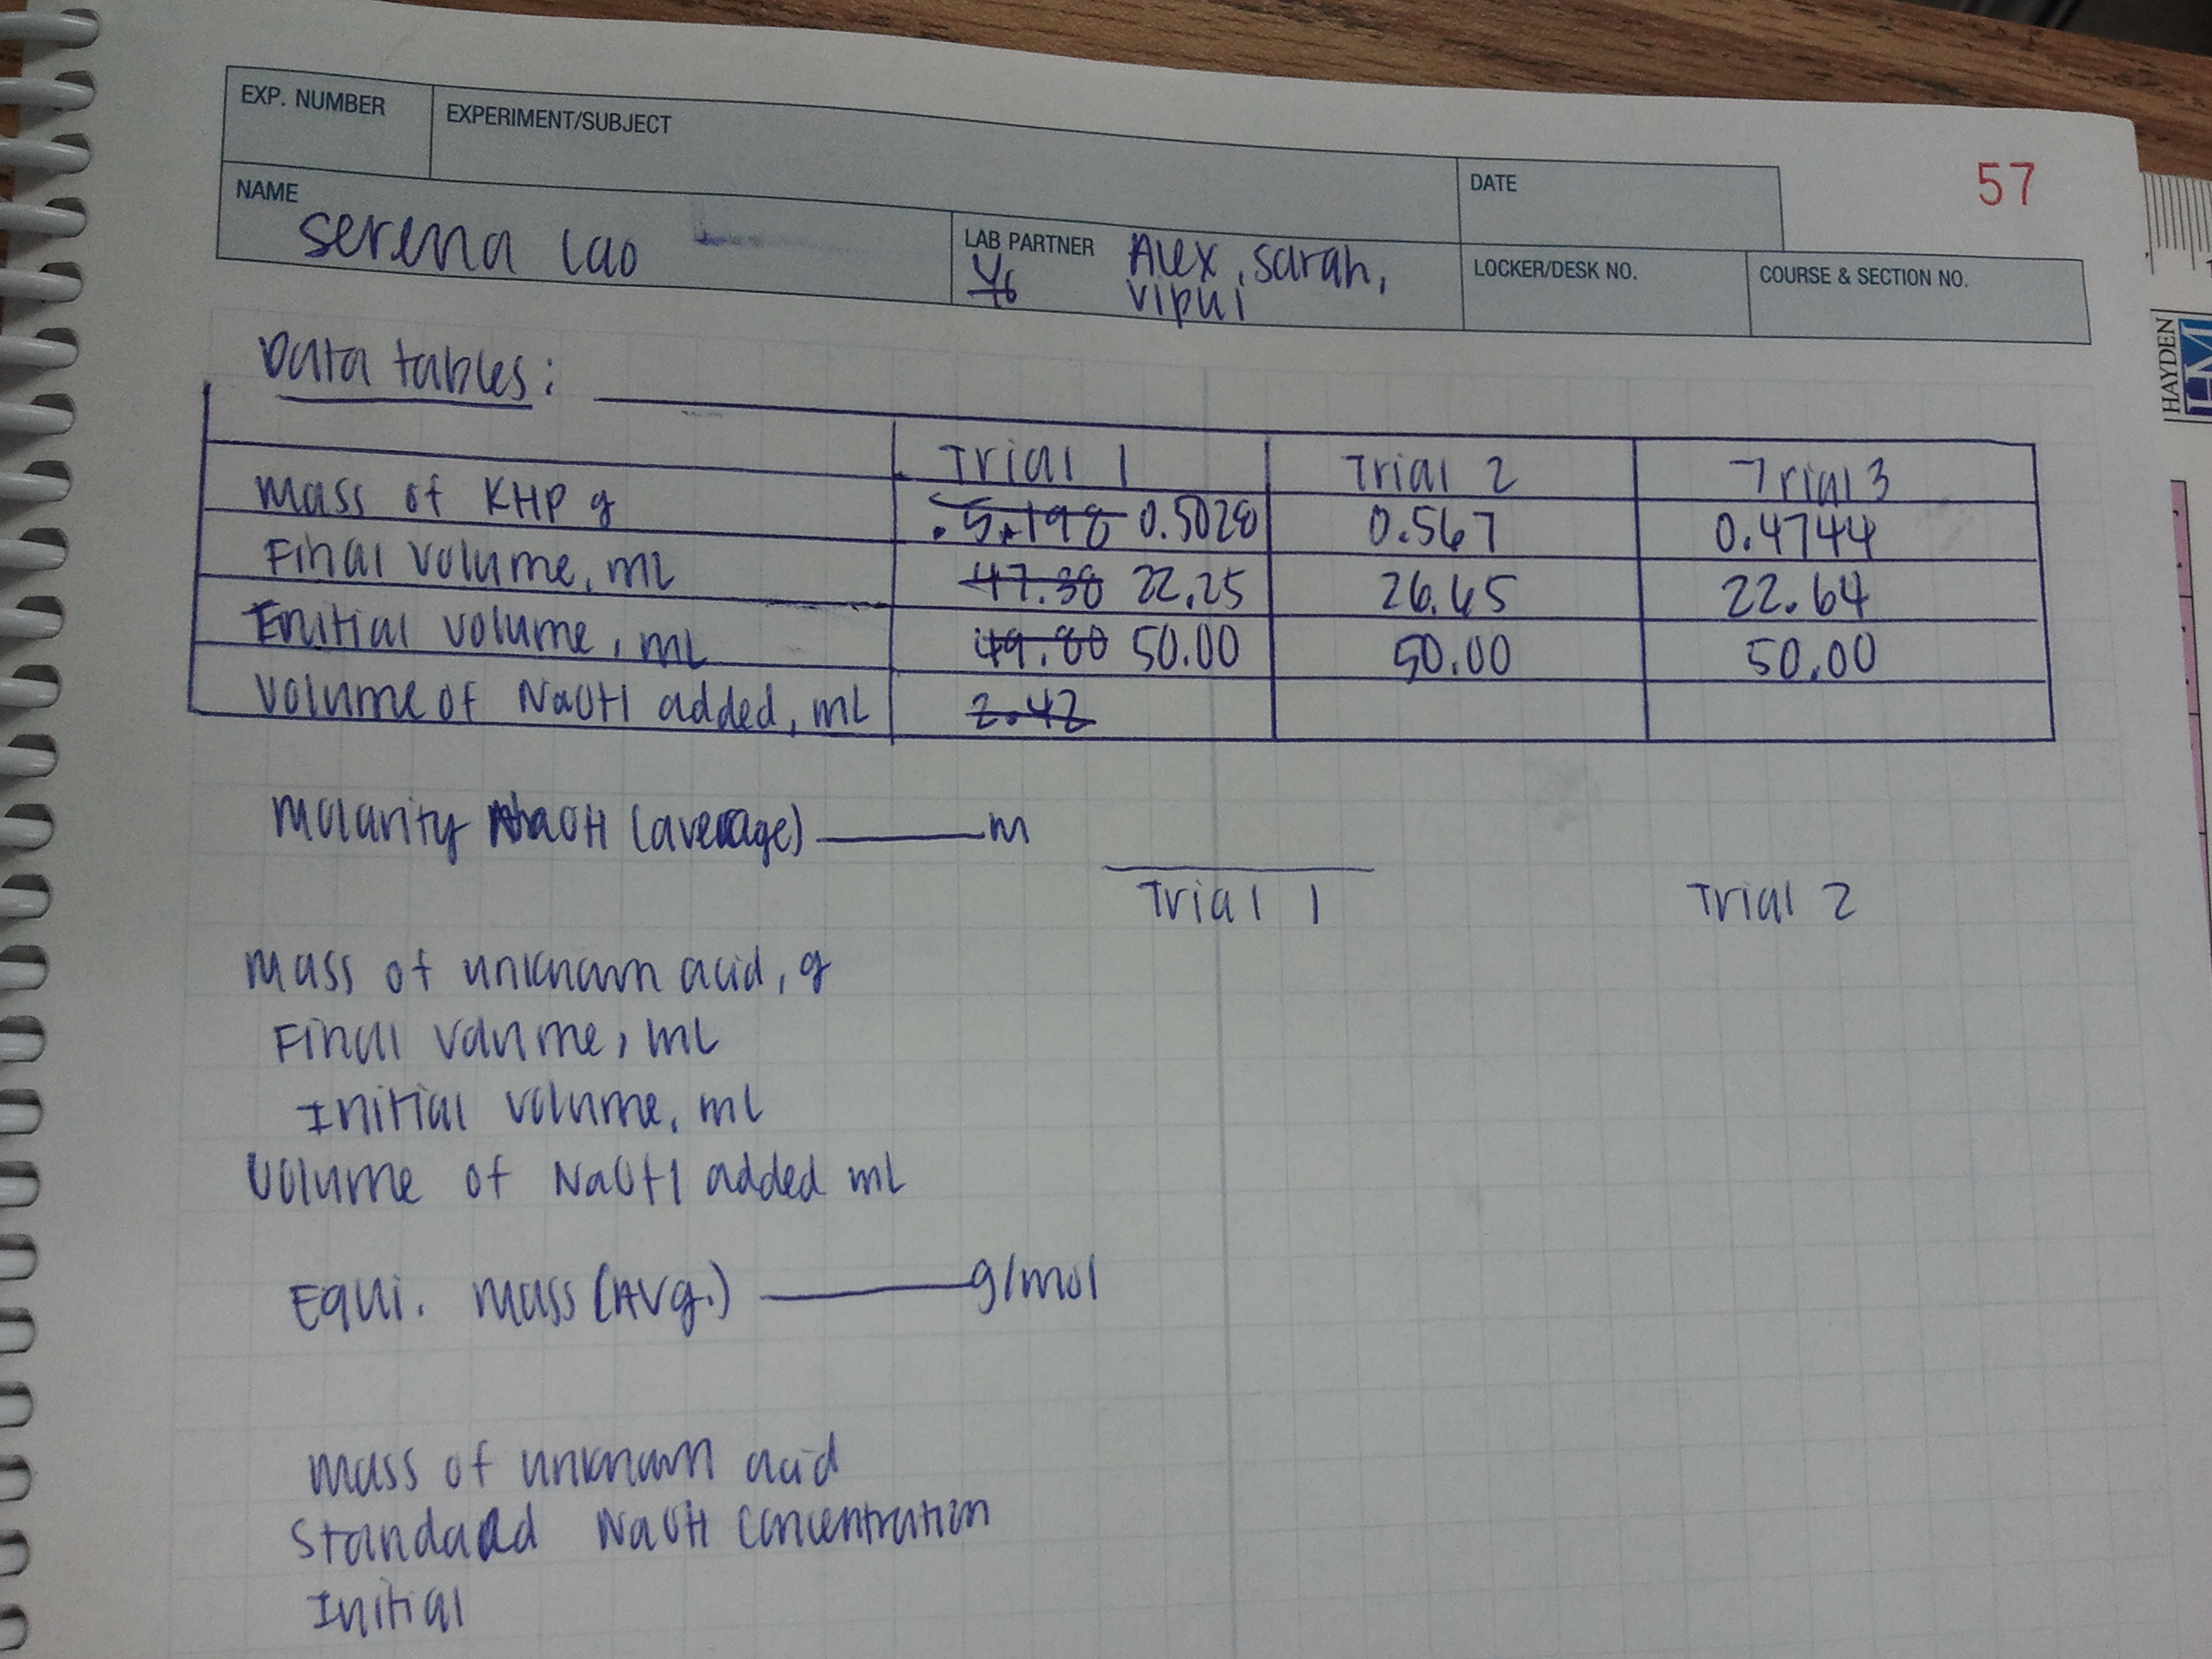 57
EXP. NUMBER EXPERIMENT/SUBJECT DATE
NAME LAB PARTNER LOCKER/DESK NO. COURSE & SECTION NO.
Serena Lao Alex, Sarah,
Vipul
Data tables:
Trial 1 Trial 2 Trial 3
Mass of KHP g 0.5028 0.567 0.4744
Final volume, mL 47.50 22.25 26.65 22.64
Initial volume, mL 49.80 50.00 50.00 50.00
Volume of NaOH added, mL 2.42
Molarity NaOH (average) M
Trial 1 Trial 2
Mass of unknown acid, g
Final volume, mL
Initial volume, mL
Volume of NaOH added mL
Equi. mass (Avg.) g/mol
Mass of unknown acid
Standard NaOH concentration
Initial
HAYDEN
HM